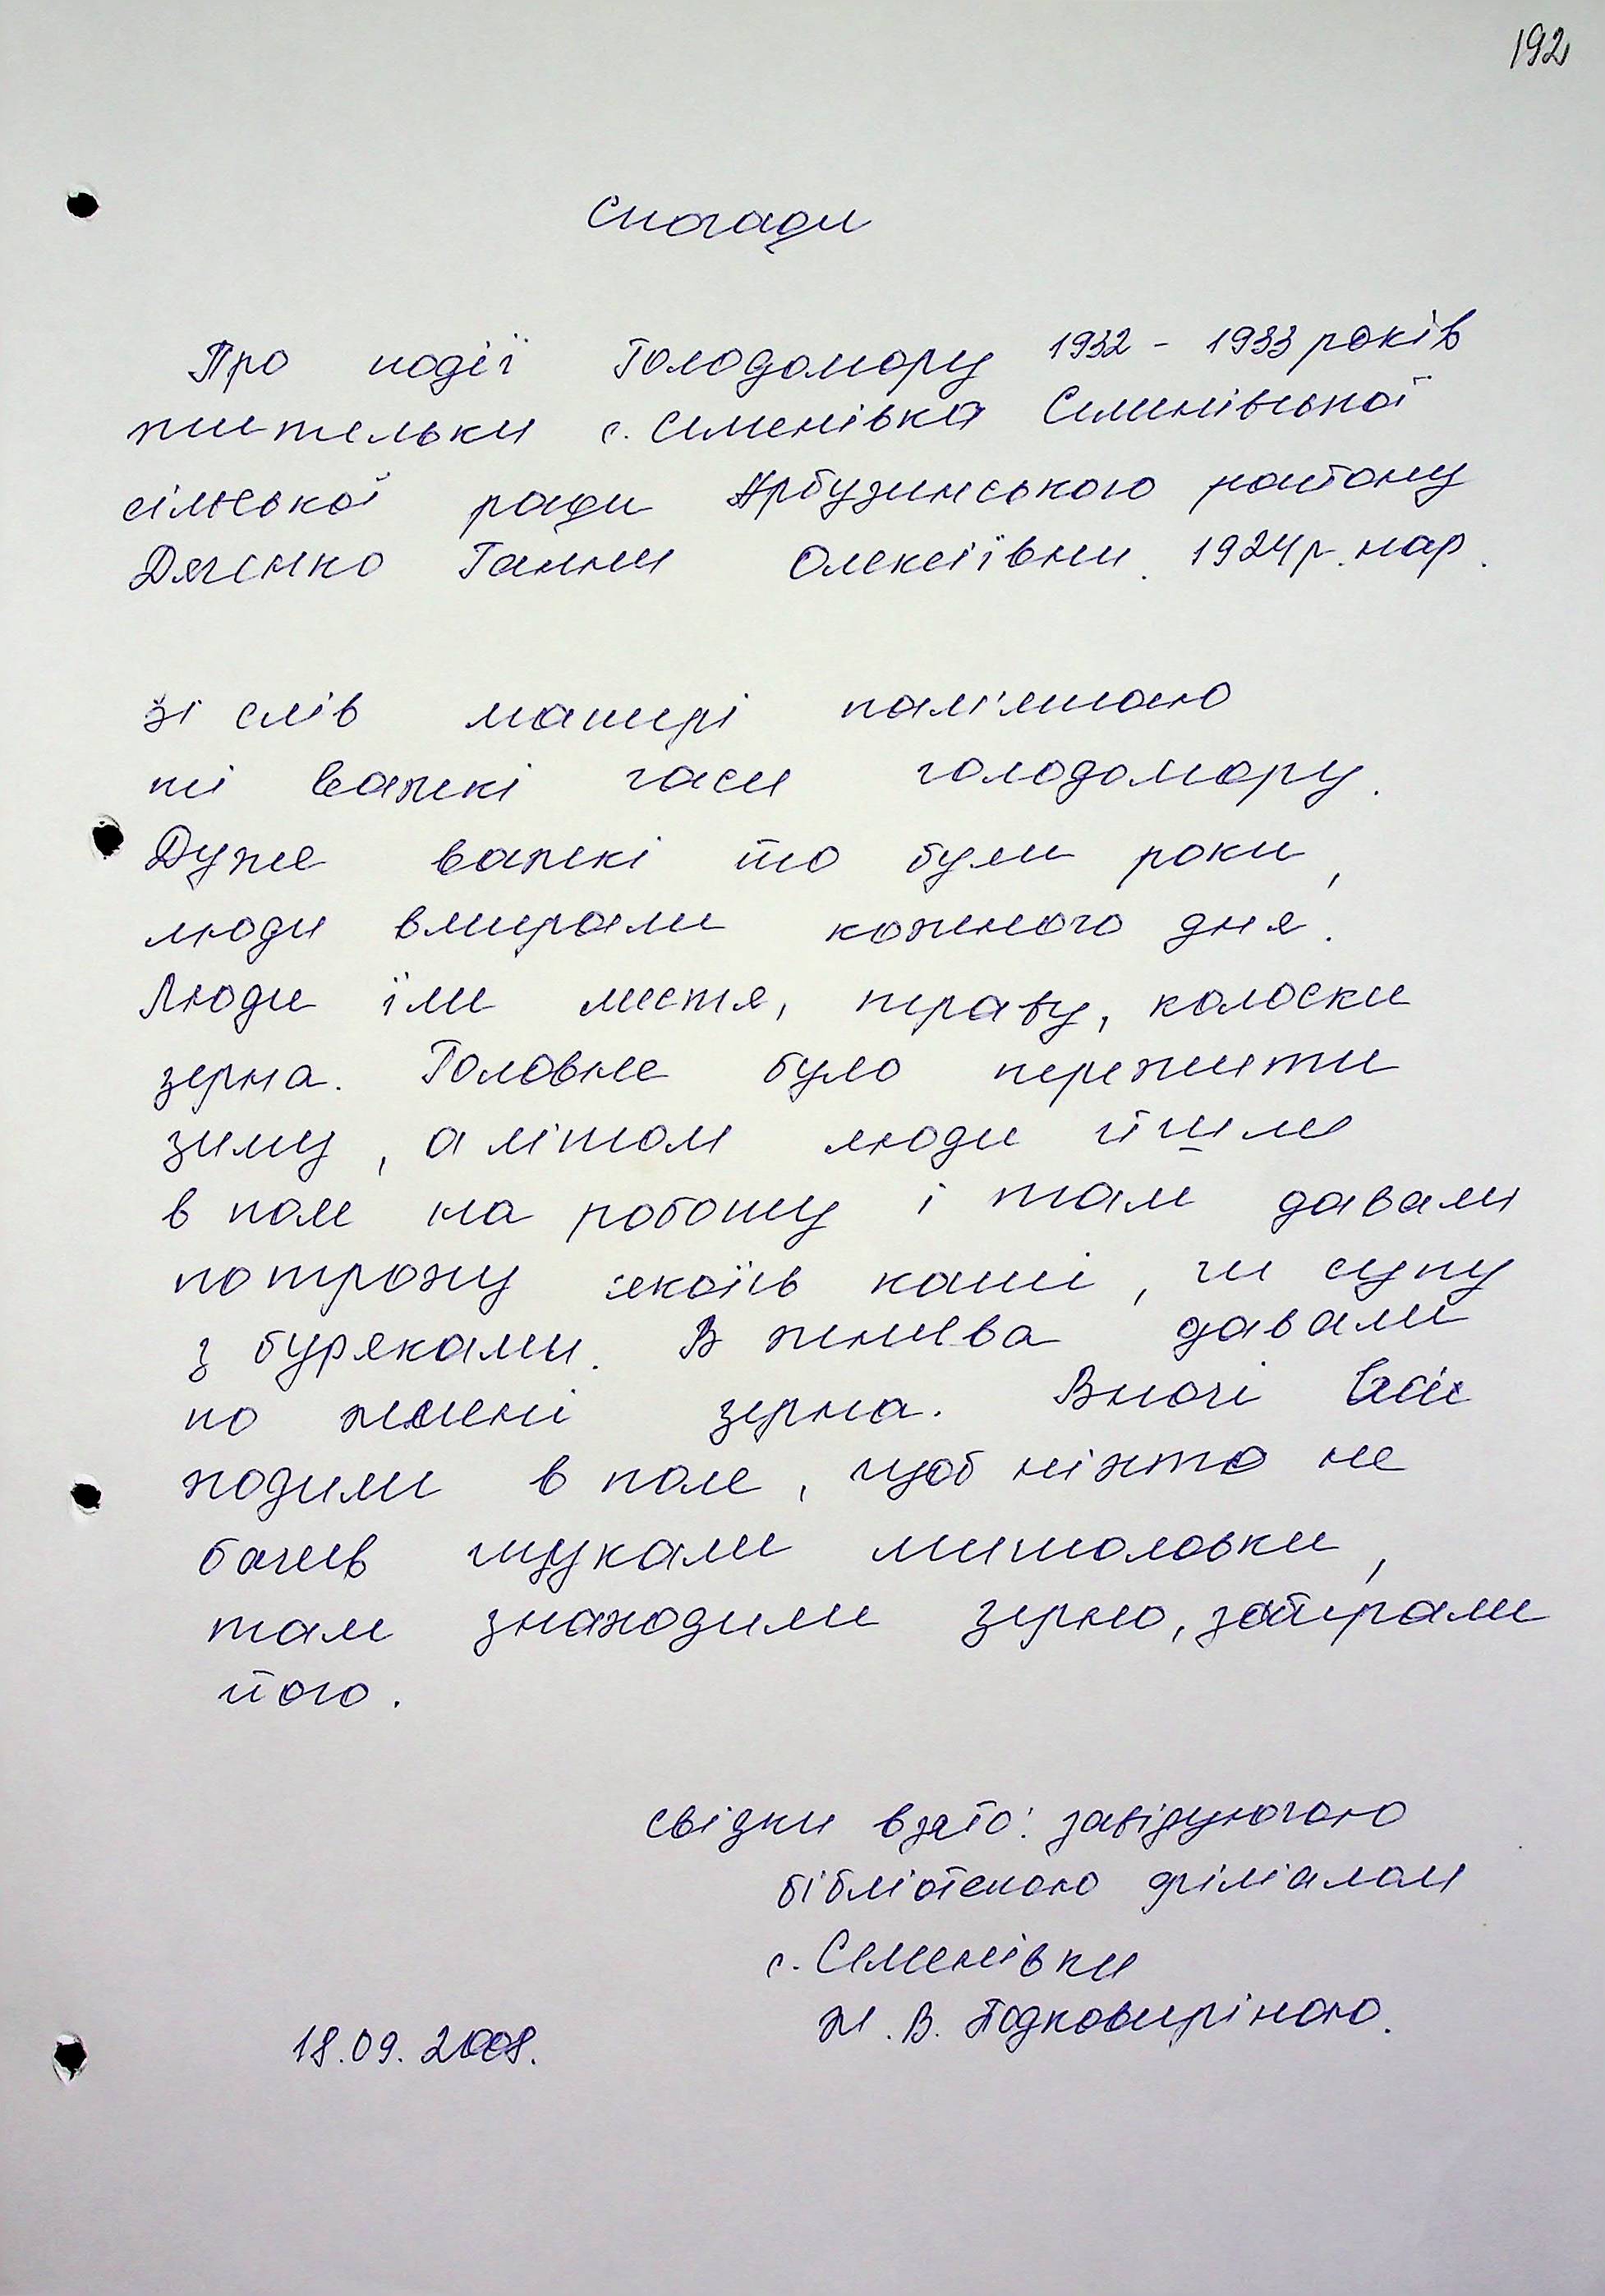 192
Спогади
Про події Голодомору 1932 - 1933 років
жительки с. Семенівка Семенівської
сільської ради Арбузинського району
Дяченко Ганни Олексіївни. 1924 р. нар.
Зі слів матері пам'ятаю
ті важкі часи голодомору.
Дуже важкі то були роки,
люди вмирали кожного дня.
Люди їли листя, траву, колоски
зерна. Головне було пережити
зиму, а літом люди йшли
в поле на роботу і там давали
потрохи якоїсь каші, чи супу
з буряками. В жнива давали
по жмені зерна. Вночі всі
ходили в поле, щоб ніхто не
бачив шукали мишоловки,
там знаходили зерно, забирали
його.
Свідки взято: завідуючою
бібліотекою філіалом
с. Семенівки
Ж. В. Подковиріною.
18.09.2008.